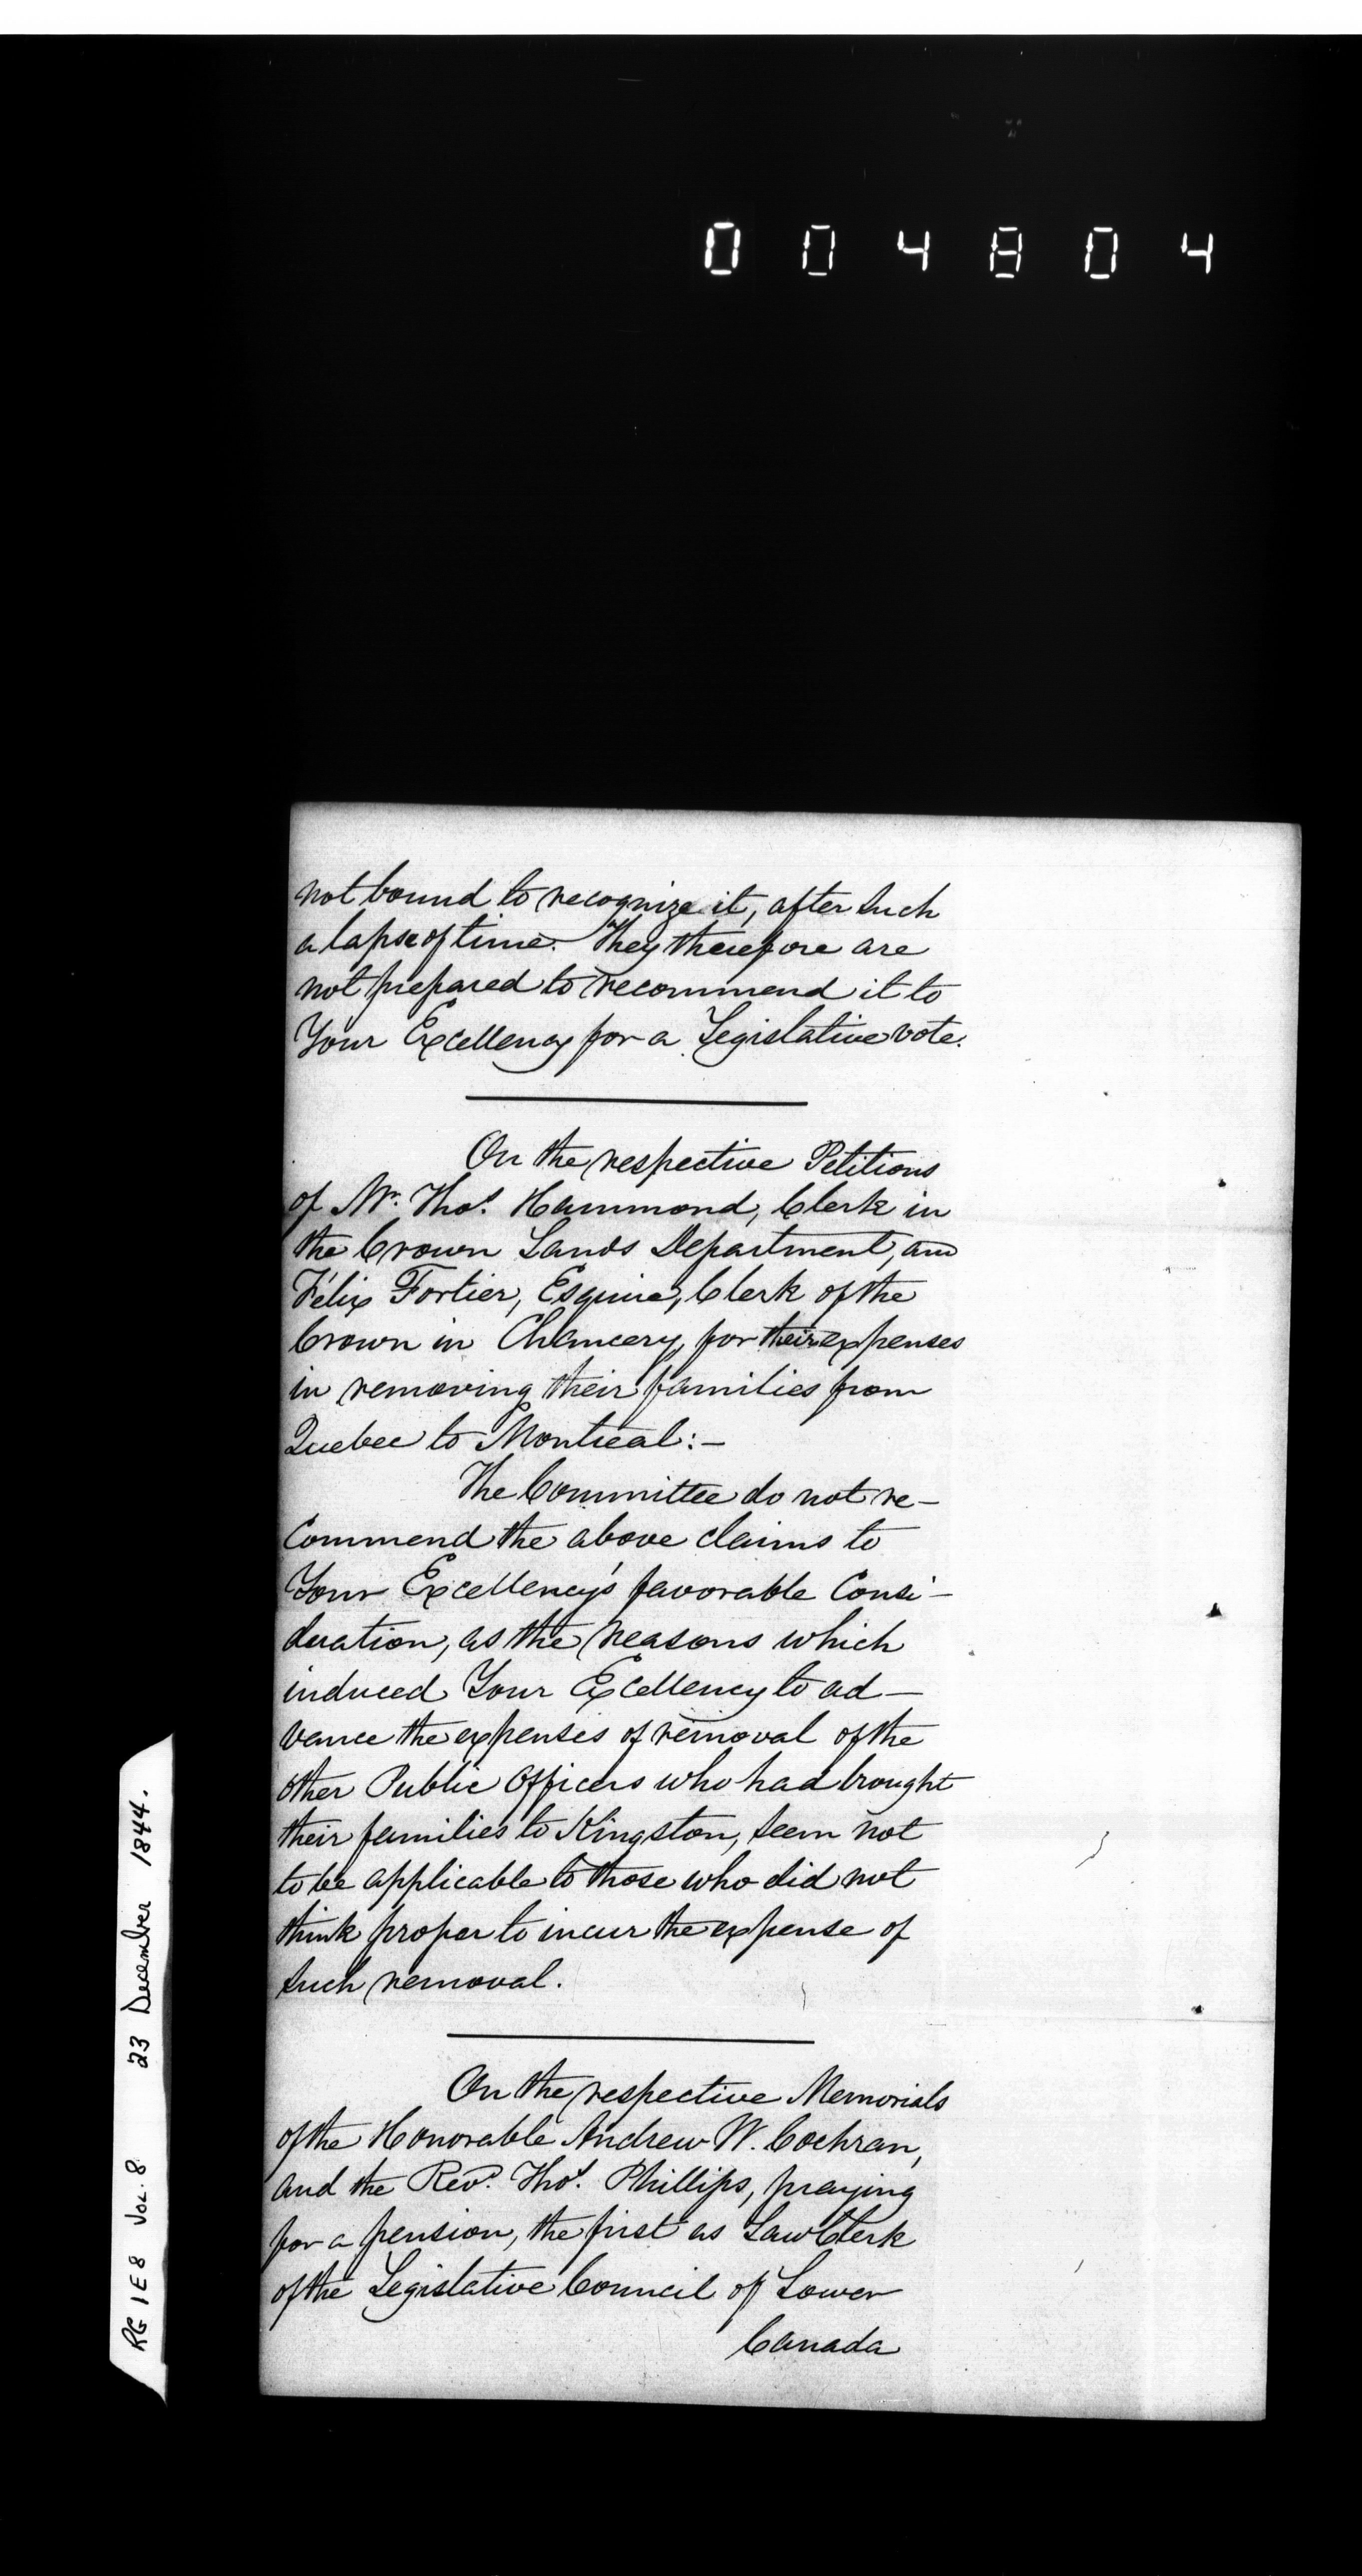 004804
not bound to recognize it, after such
a lapse of time. They therefore are
not prepared to recommend it to
Your Excellency for a Legislative vote.
On the respective Petitions
of Mr. Thos. Hammond, Clerk in
the Crown Lands Department, and
Félix Fortier, Esquire, Clerk of the
Crown in Chancery, for their expenses
in removing their families from
Quebec to Montreal:-
The Committee do not re-
commend the above claims to
Your Excellency's favorable Consi-
deration, as the reasons which
induced Your Excellency to ad-
vance the expenses of removal of the
other Public Officers who had brought
their families to Kingston, seem not
to be applicable to those who did not
think proper to incur the expense of
such removal.
On the respective Memorials
of the Honorable Andrew W. Cochran,
and the Revd. Thos. Phillips, praying
for a pension, the first as Law Clerk
of the Legislative Council of Lower
Canada
RG 1 E 8 Vol. 8 23 December 1844.